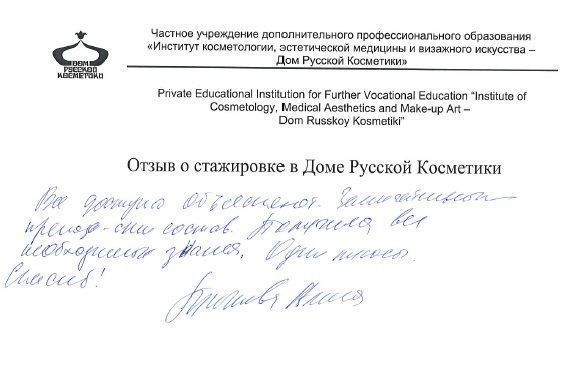 Частное учреждение дополнительного профессионального образования
«Институт косметологии, эстетической медицины и визажного искусства –
Дом Русской Косметики»
ДОМ
РУССКОЙ
КОСМЕТИКИ
Private Educational Institution for Further Vocational Education “Institute of
Cosmetology, Medical Aesthetics and Make-up Art –
Dom Russkoy Kosmetiki”
Отзыв о стажировке в Доме Русской Косметики
Все доступно объясняют. Замечательный
препод-ский состав. Получила все
необходимые знания. Одни плюсы.
Спасибо!